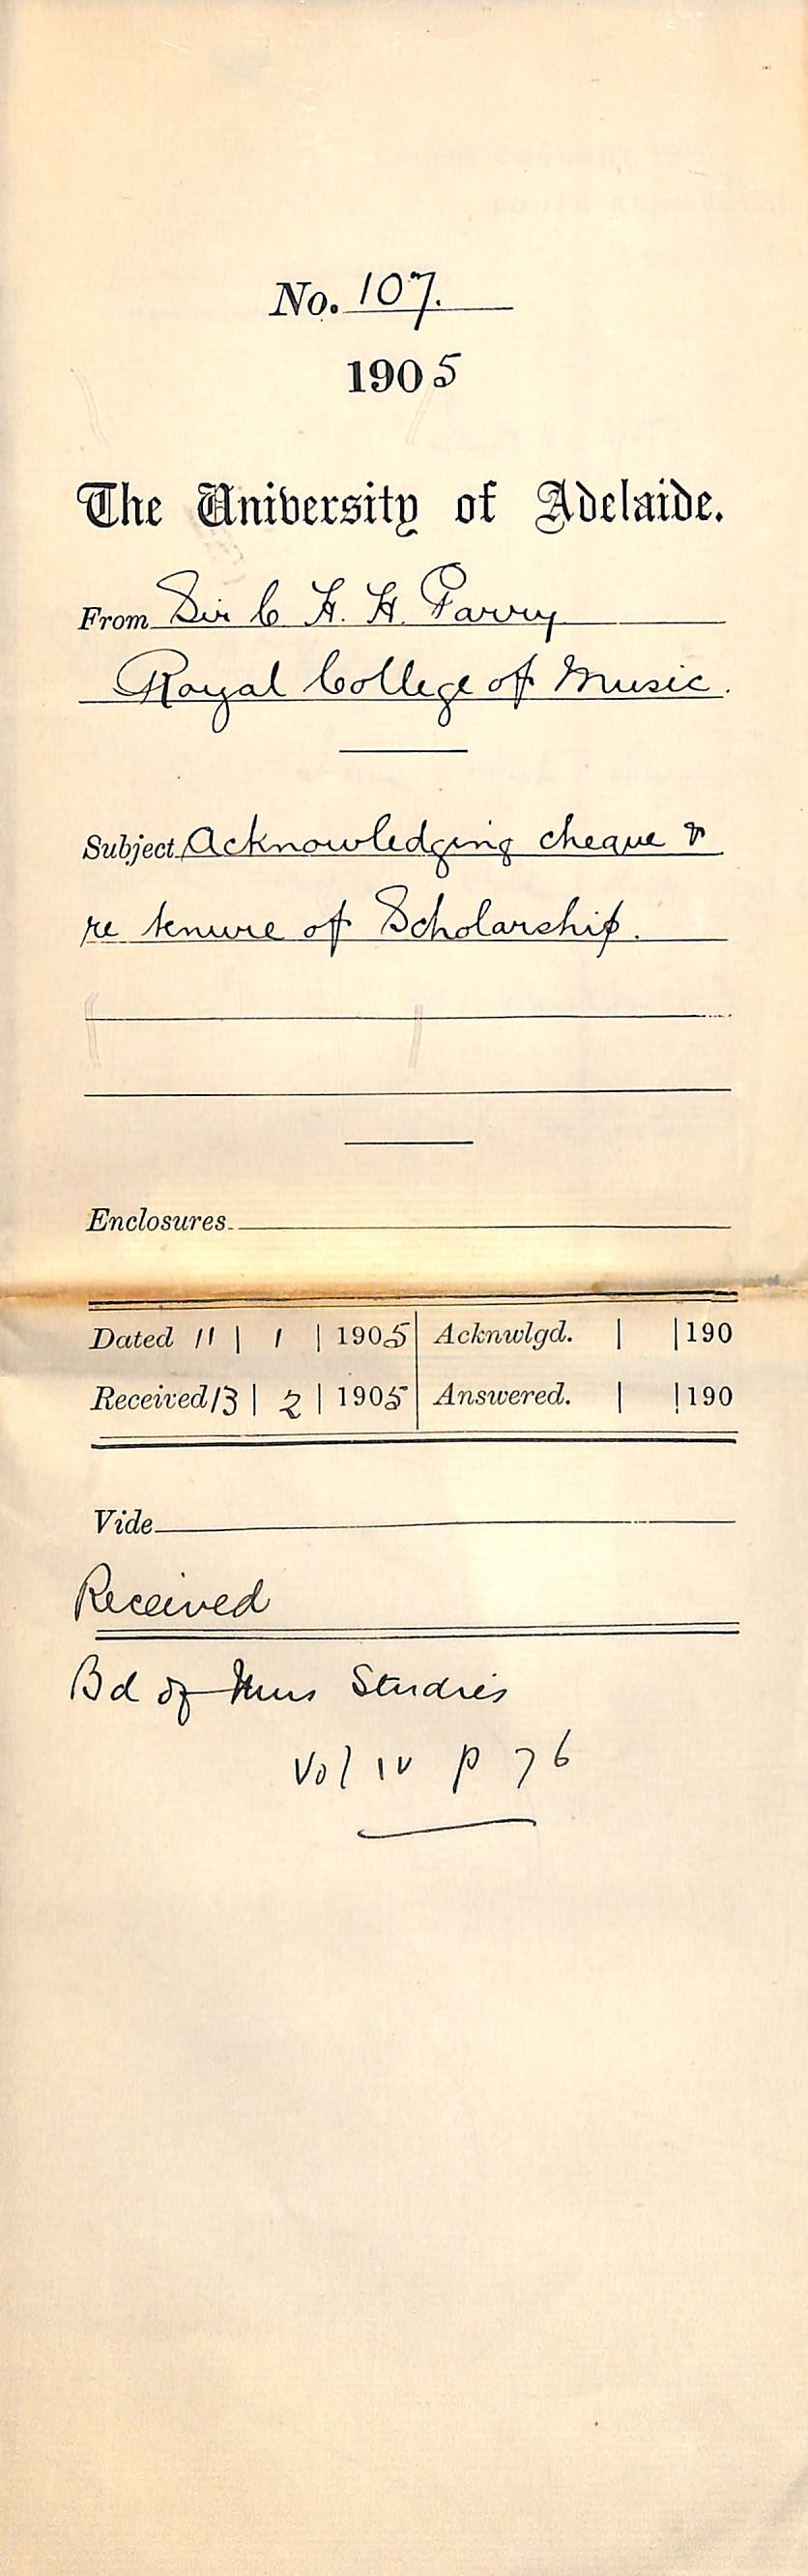 No. 107.
1905
The University of Adelaide.
From Sir C H. H. Parry
Royal College of Music.
Subject Acknowledging cheque &
re tenure of Scholarship.
Enclosures
Dated 11 | 1 | 1905 | Acknwlgd. | | 190
Received 13 | 2 | 1905 | Answered. | | 190
Vide
Received
Bd of Mus Studies
Vol IV p 76